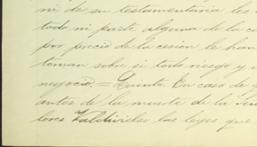 ni de su testamentaria les
todo ni parte alguna de la c
por precio de la cesión le han
toman sobre si todo riesgo y
negocio. = Quinta. En caso de q
antes de la muerte de la Seu
lores Valdivieso las leyes que